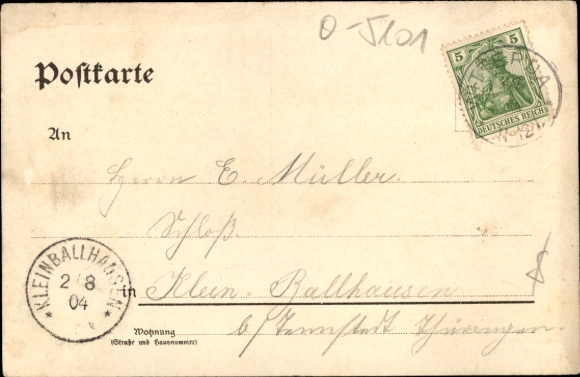 O-5101
5 5
DEUTSCHES REICH
Postkarte
An
Herrn E. Müller.
Schloß.
in Klein-Ballhausen
b/Tennstedt Thüringen.
KLEINBALLHAUSEN
2 8
04
Wohnung
(Straße und Hausnummer)